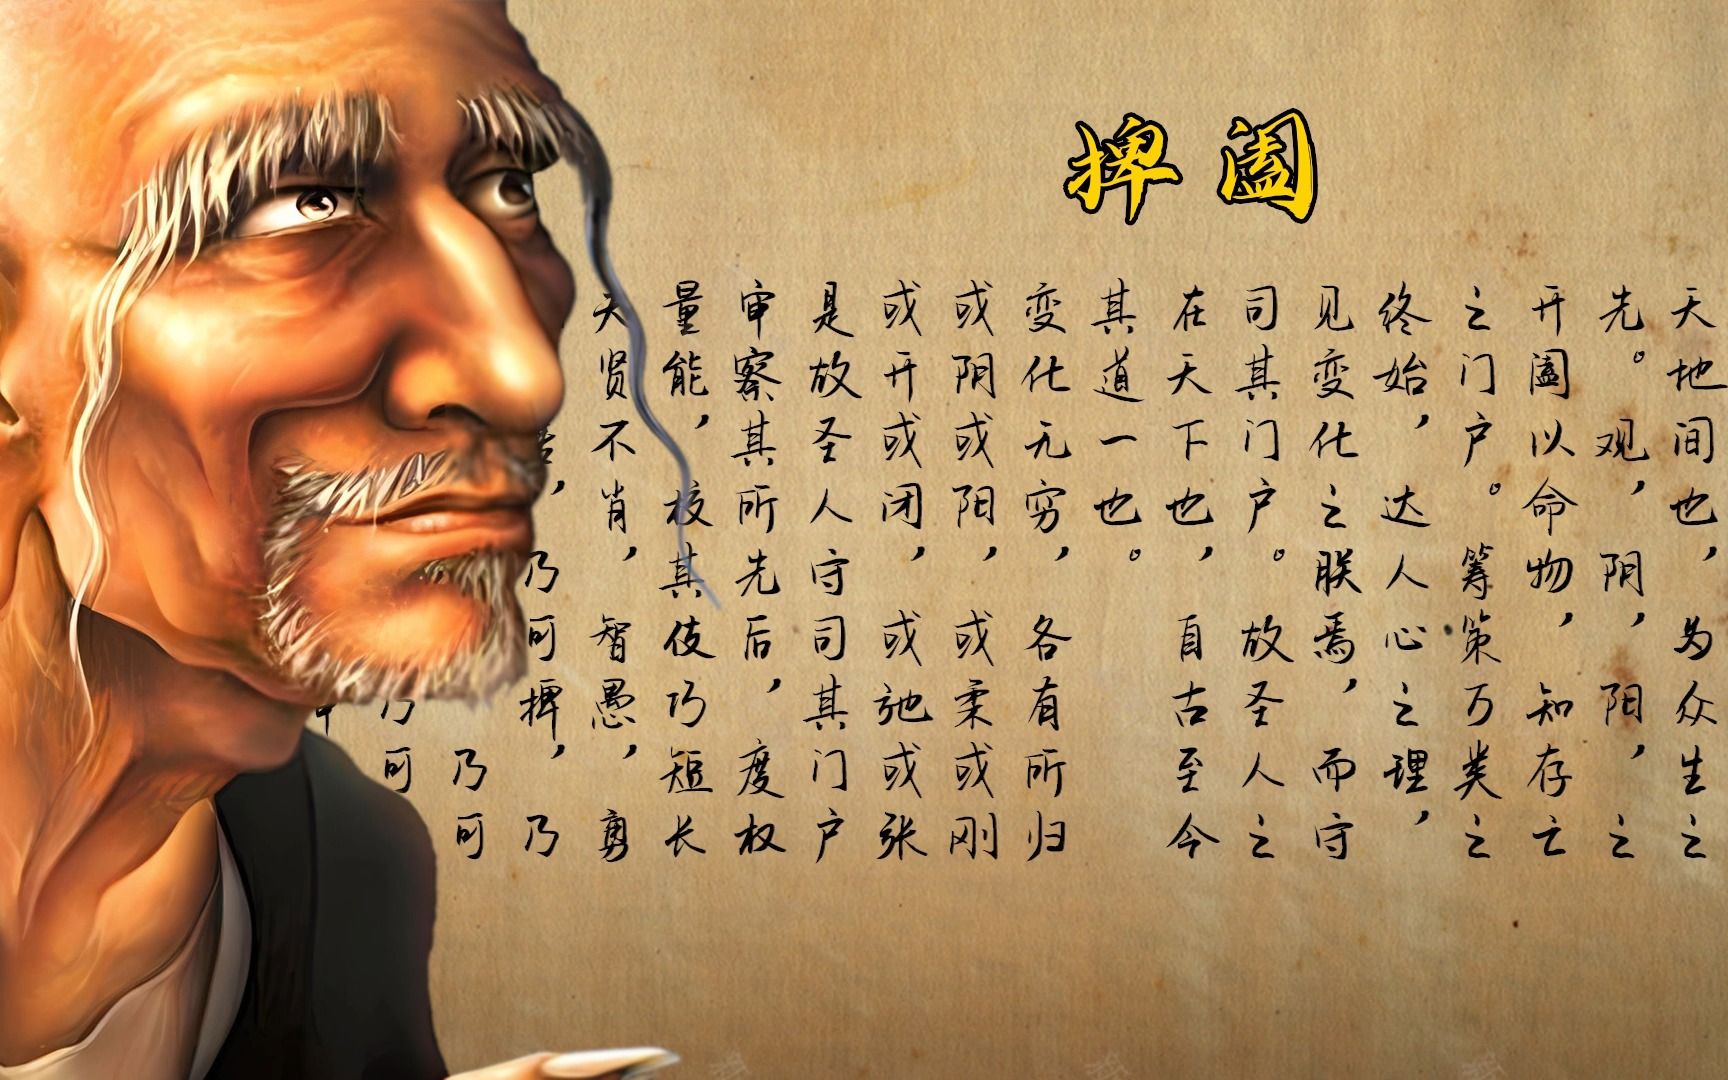 捭阖
天地间也，为众生之
先。观，阴，阳，之
开阖以命物，知存亡
之门户。筹策万类之
终始，达人心之理，
见变化之朕焉，而守
司其门户。故圣人之
在天下也，自古至今
其道一也。
变化无穷，各有所归
或阴或阳，或柔或刚
或开或闭，或弛或张
是故圣人守司其门户
审察其所先后，度权
量能，校其伎巧短长
贤不肖，智愚，勇
，乃可捭，乃
乃可
乃可